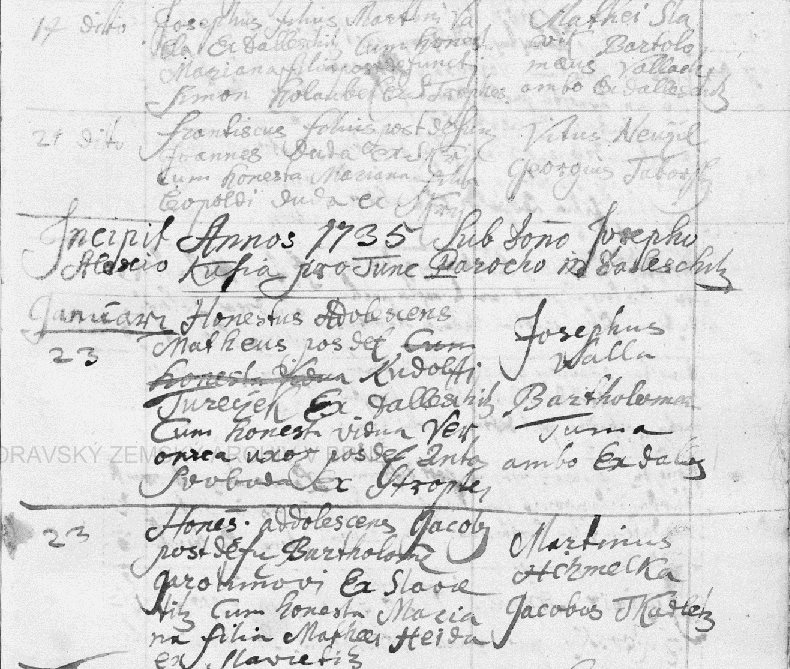 17 dito Josephus filius Martini
Ex Dalleschitz Cum honest
Mariana filia post defuncti
Simon Holaubek Ex
Mathei Sla
Bartolo
maeus Vallach
ambo Ex Dalleschitz
21 dito Frantiscus filius post defunc
Joannes Duda Ex
Cum honesta Mariana filia
Leopoldi Duda ex
Vitus Neugil
Georgius Taborsk
Incipit Annos 1735 Sub Dono Josepho
Alexio Kufia pro Tunc Parocho in Dalleschitz
Januarii Honestus Adolesciens
23 Matheus pos def Cum
honesta vidua Rudolffi
Jureczek Ex Dalleschitz
Cum honesta vidua Ver
onica uxor pos def Anto
Swoboda Ex Stropes
Josephus
Walla
Bartholomeus
Tuma
ambo Ex Dales
23 Hones. addolescens Jacob
post defu Bartholom
Protimovi Ex Slawe
titz Cum honesta Maria
na filia Mathaei Heida
ex Slavietitz
Martinus
Chmelka
Jacobus Tkadletz